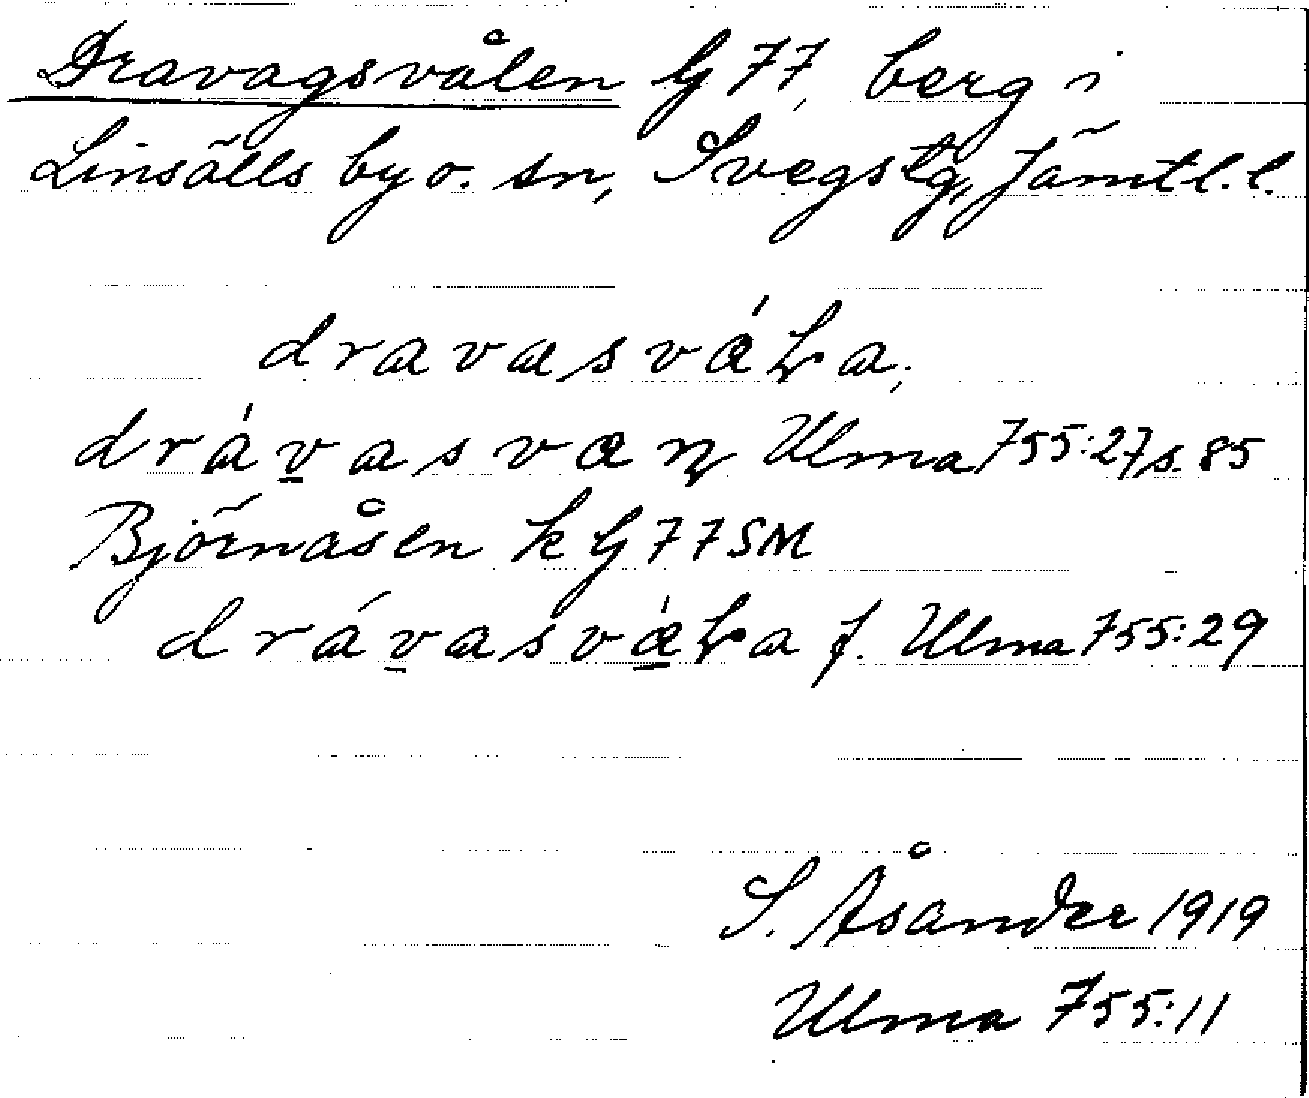 Dravagsvålen G 77, berg i
Linsälls by o. sn, Svegs tg, Jämtl. l.
dravasvæ̀ɽa;
drávasvæɳ Ulma 755:27 s. 85
Björnåsen k G 77 SM
drávasvæ̀ɽa f. Ulma 755:29
S. Åsander 1919
Ulma 755:11